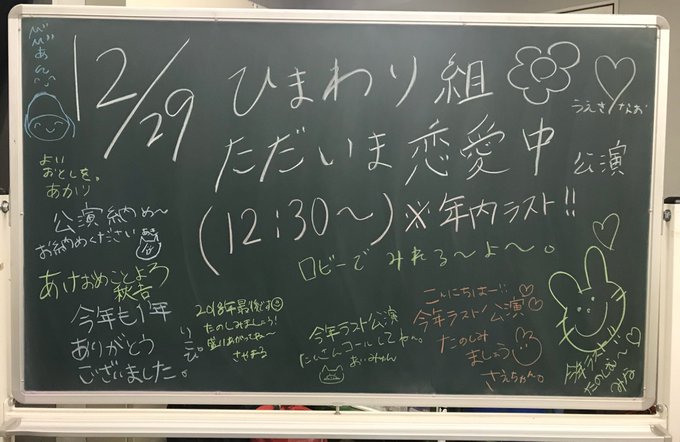 12/29 ひまわり組
ただいま恋愛中 公演
(12:30〜)※年内ラスト!!
ロビーでみれる〜よ〜。
うえきなお
よい
おとしを。
あかり
公演納め〜
お納めください
あけおめことよろ
秋吉
今年も1年
ありがとう
ございました。
りこぴ
2018年最後です
たのしみましょう!
盛りあがってね〜
さやまる
今年ラスト公演
たくさんコールしてね〜。
おいみゃん
こんにちはー!!
今年ラスト公演
たのしみ
ましょう
さえちゃん。
今年ラスト!!
たのしむ〜
みな